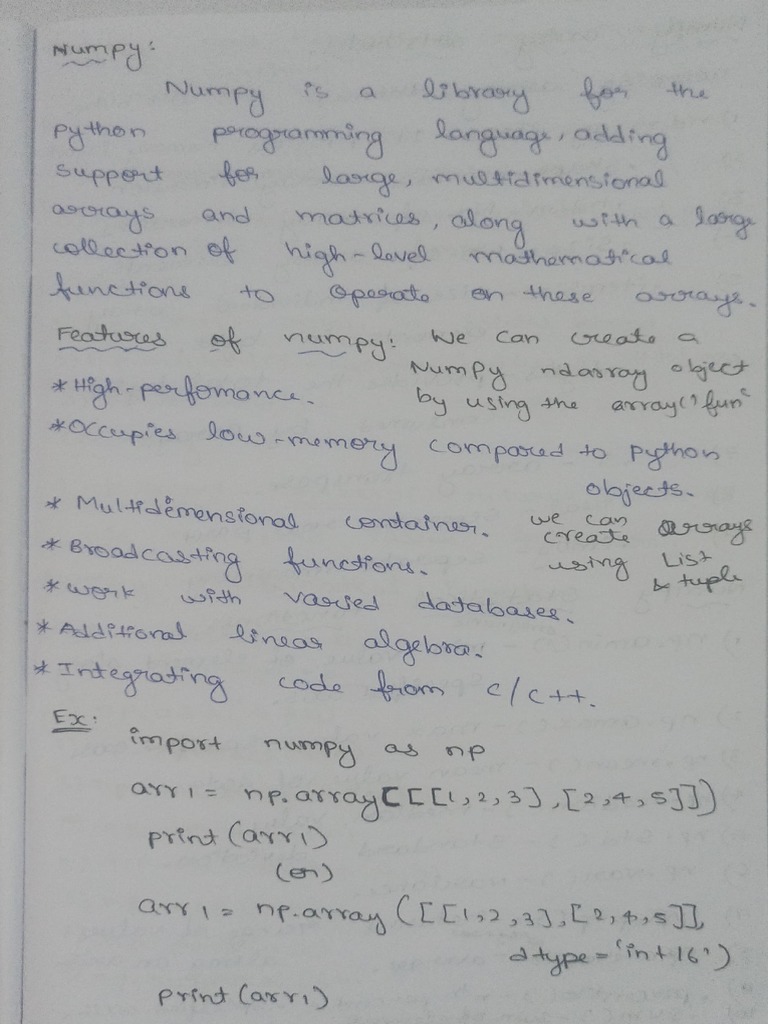 Numpy:
Numpy is a library for the
python programming language, adding
support for large, multidimensional
arrays and matrices, along with a large
collection of high-level mathematical
functions to operate on these arrays.
Features of numpy: We can create a
NumPy ndarray object
* High-perfomance. by using the array() fun
* Occupies low-memory compared to python
objects.
* Multidimensional container. we can create arrays
* Broadcasting functions. using List & tuple
* work with varied databases.
* Additional linear algebra.
* Integrating code from c/c++.
Ex:
import numpy as np
arr1 = np.array[[[1,2,3],[2,4,5]])
print(arr1)
(or)
arr1 = np.array([[1,2,3],[2,4,5]],
dtype='int16')
print(arr1)